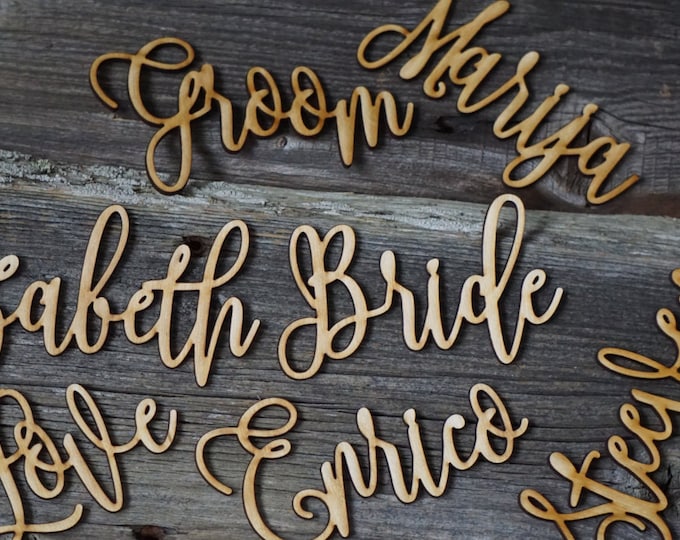 Groom
Marija
abeth
Bride
Love
Enrico